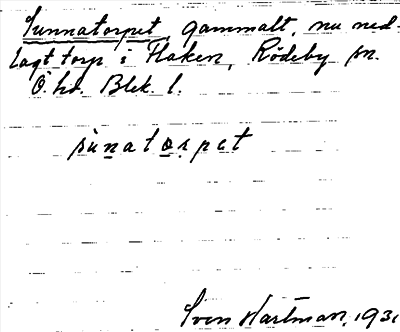 Sunnatorpet, gammalt, nu ned-
lagt torp i Flaken, Rödeby sn.
Ö. hd. Blek. l.
sunatorpet
Sven Hartman, 1931